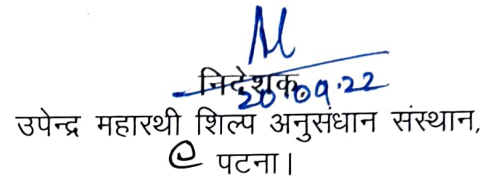 निदेशक
20.09.22
उपेन्द्र महारथी शिल्प अनुसंधान संस्थान,
पटना।